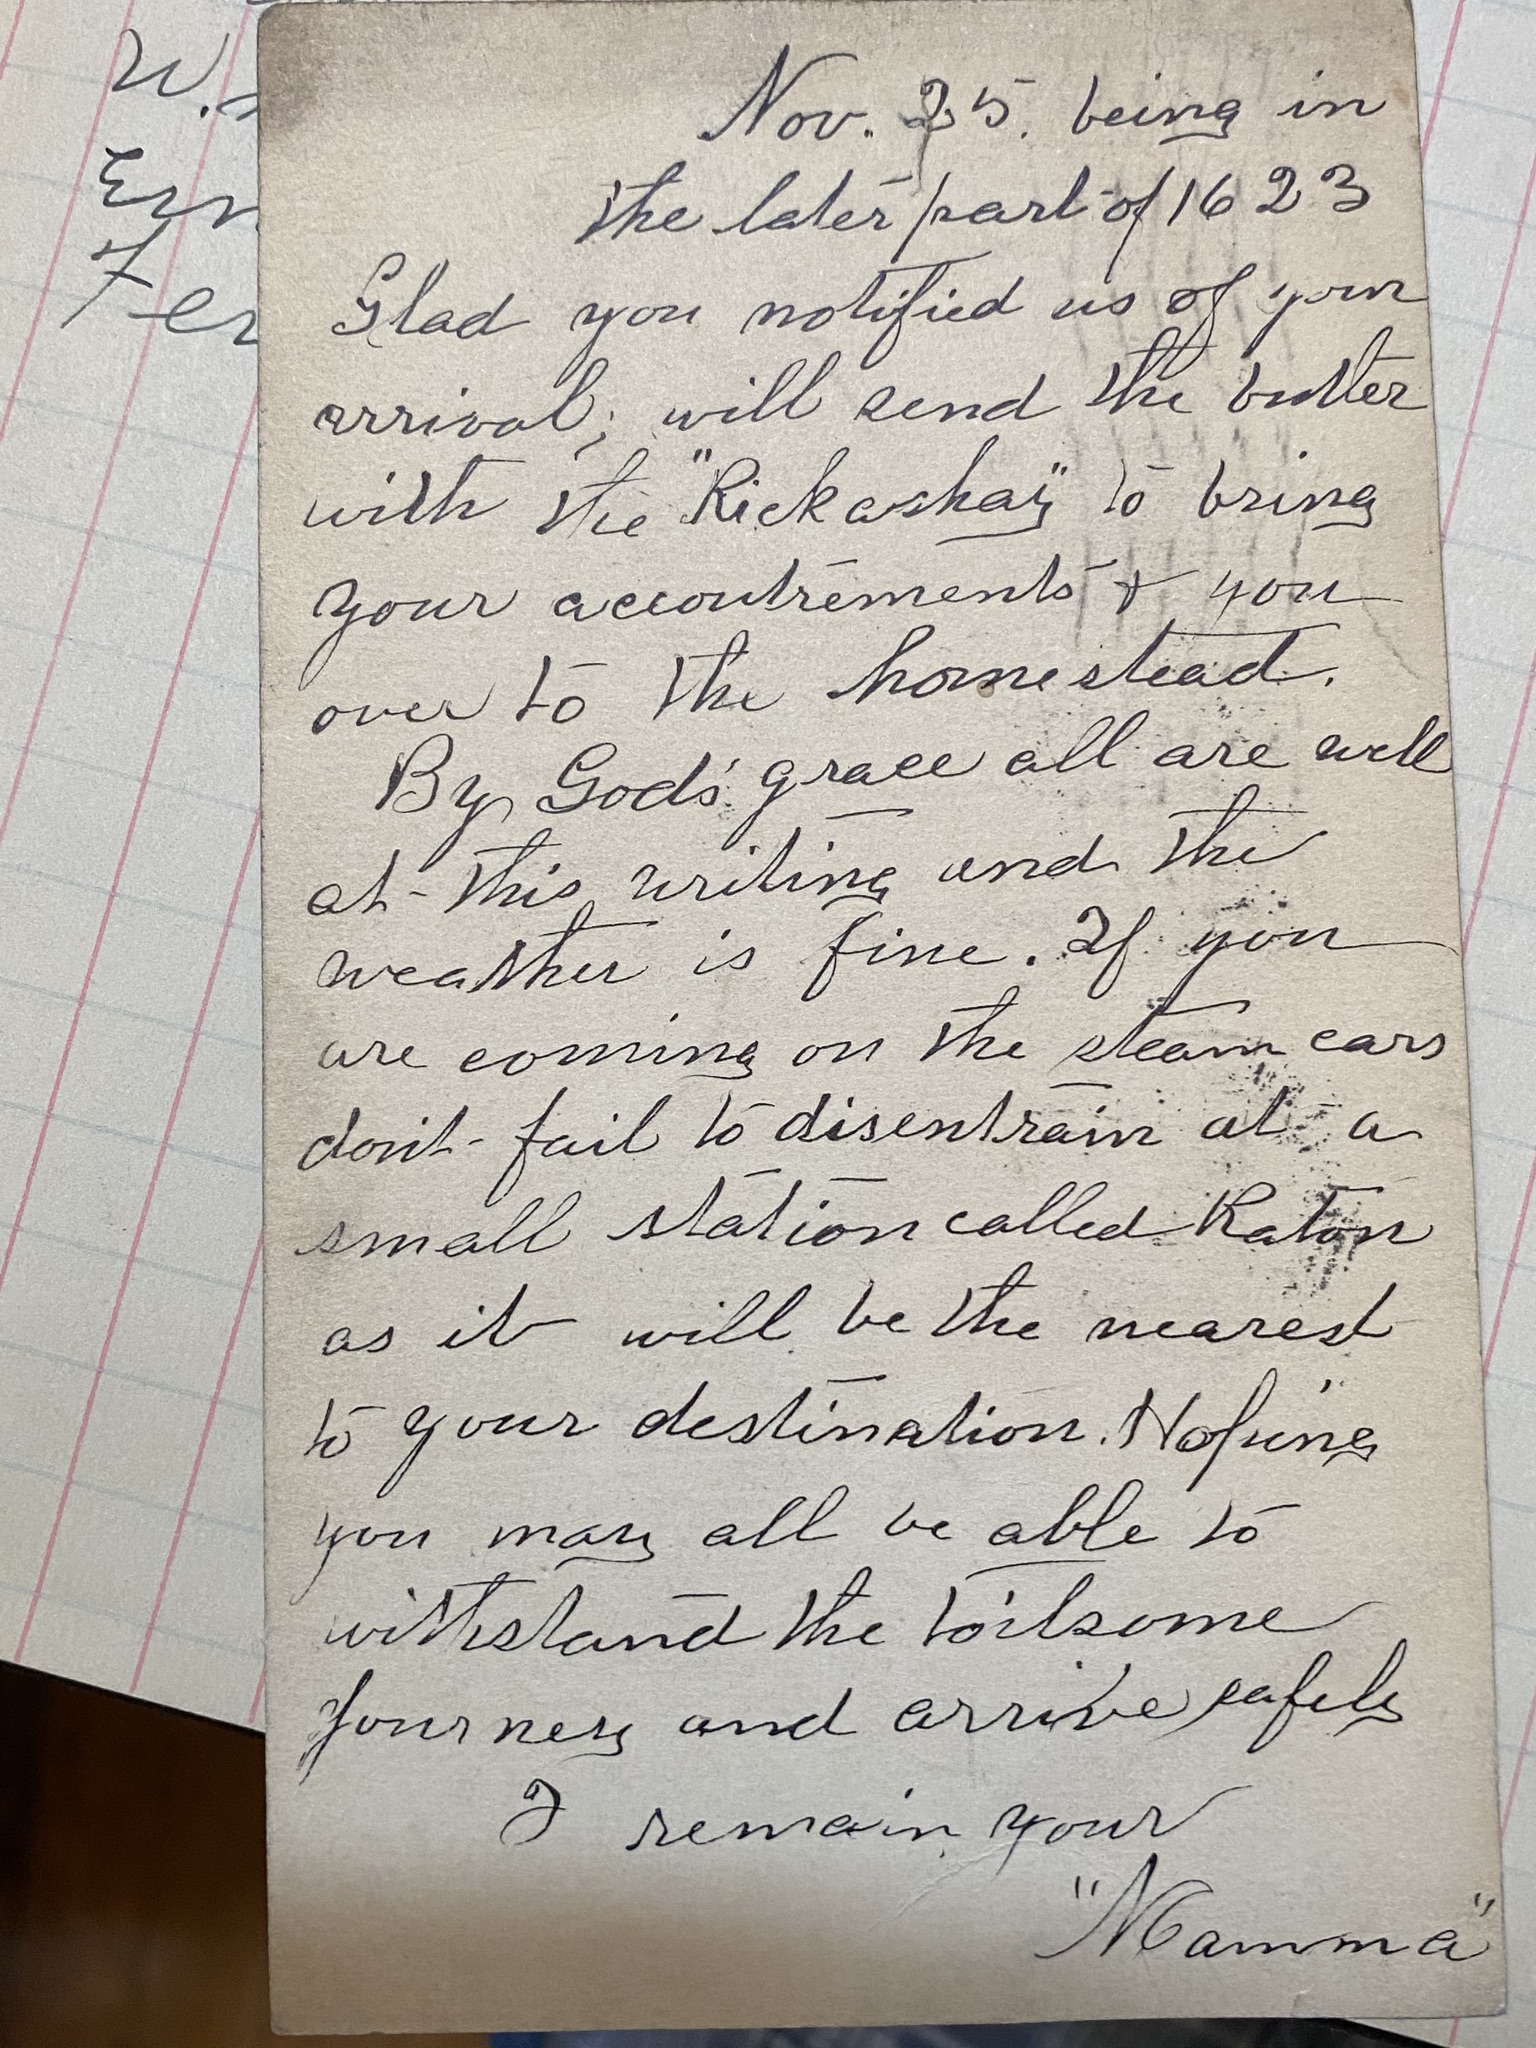 W.
Ern
Fer
Nov. 25. being in
the later part of 1623
Glad you notified us of your
arrival; will send the butler
with the "Rickashay" to bring
your accoutrements & you
over to the homestead.
By God's grace all are well
at this writing and the
weather is fine. If you
are coming on the steam cars
don't fail to disentrain at a
small station called Raton
as it will be the nearest
to your destination. Hoping
you may all be able to
withstand the toilsome
journey and arrive safely
I remain your
"Mamma"